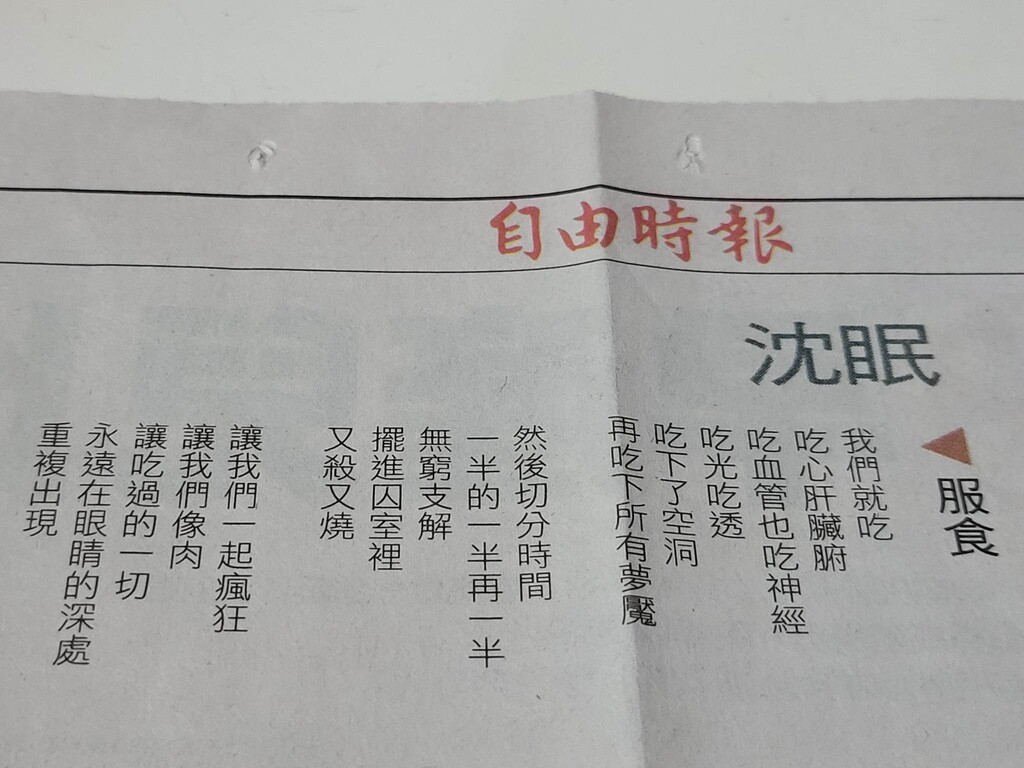 自由時報
沈眠
服食
我們就吃
吃心肝臟腑
吃血管也吃神經
吃光吃透
吃下了空洞
再吃下所有夢魘
然後切分時間
一半的一半再一半
無窮支解
擺進囚室裡
又殺又燒
讓我們一起瘋狂
讓我們像肉
讓吃過的一切
永遠在眼睛的深處
重複出現